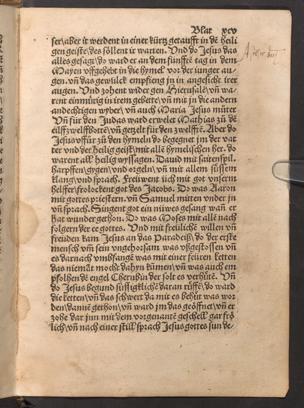 Blat xcv
ser/aber ir werdent in einer kürtz getaufft in dē heili
gen geiste/des söllent ir warten. Vnd do Jesus das
alles gesagt/do ward er an dem fünfftē tag in dem
Mayen auffgehebt in die hymel vor der iunger au
gen. vn̄ das gewülck empfieng jn in angesicht irer
augen. Vnd zohent wider gen Hierusalē/vn̄ wa
rent einmütig in irem gebette/vn̄ mit jn die andern
andechtigen wyber/vn̄ auch Maria Jesus můter
Vn̄ für den Judas ward erwelet Mathias zů dē
eilff zwelffbottē/vn̄ gezelt für den zwelfftē. Aber do
Jesus vffůr zů den hymeln do begegnet jm der vat
ter vnd der heilig geist/mit allē hymelischen her. do
warent all heilig wyssagen. Dauid mit saitenspil.
harpffen/gygen/vnd orgeln/vn̄ mit allem süssem
klang/vnd sprach. Freuwent üch mit got vnserm
helffer/frolockent got des Jacobs. Do was Aaron
mit gottes priestern. vn̄ Samuel mitten vnder jn
vn̄ sprach. Singent got ein nüwes gesang wan̄ er
hat wunder gethon. Do was Moses mit allē nach
folgern der ee gottes. Vnd mit frölichē willen vn̄
freüden kam Jesus an das Paradeiß/do der erste
mensch vn̄ sein vngehorsam was vßgestossen vn̄
es darnach vmbfangē was mit einer feürē ketten
das niemāt moche dahin kümen/vn̄ was auch em
pfolhen dē engel Cherubin der solt es verhütē. Vn̄
do Jesus begund süssigklichē daran rüffē/do ward
die ketten/vn̄ das schwert da mit es behüt was wor
den/danné gethon/vn̄ ward jm das geöffnet/vn̄ er
zohe dar jnn mit dem vorgenantē geschell gar frö
lich/vn̄ nach einer still sprach Jesus gottes sun de⸗